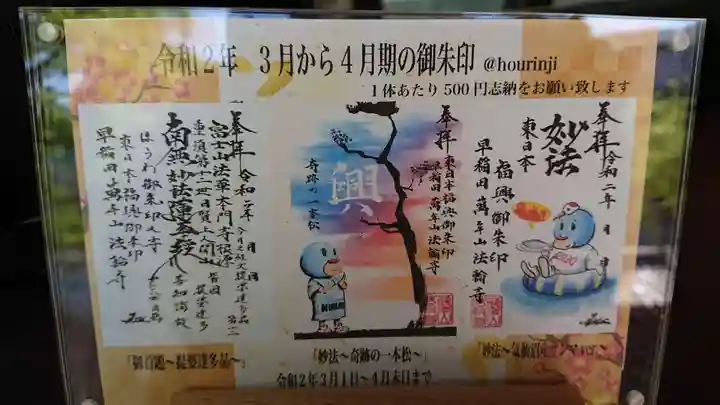 令和2年 3月から4月期の御朱印 @hourinji
1体あたり500円志納をお願い致します
奉拝 令和二年 月 日
妙法
東日本
福興御朱印
早稲田 萬年山法輪寺
奉拝
東日本福興御朱印
早稲田 萬年山法輪寺
興
奇跡の一本松
奉拝 令和二年 月 日
富士山法華本門寺根源
南無妙法蓮華経
ほうわ御朱印之寺
東日本福興御朱印
早稲田 萬年山法輪寺
「御首題~提婆達多品~」
「妙法~奇跡の一本松~」
「妙法~気仙沼
令和2年3月1日~4月末日まで